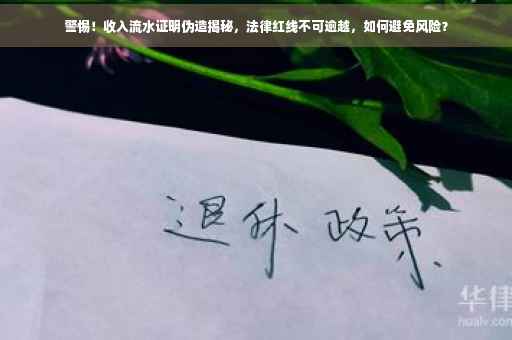 警惕！收入流水证明伪造揭秘，法律红线不可逾越，如何避免风险？
退休 政策
华律
hualv.com